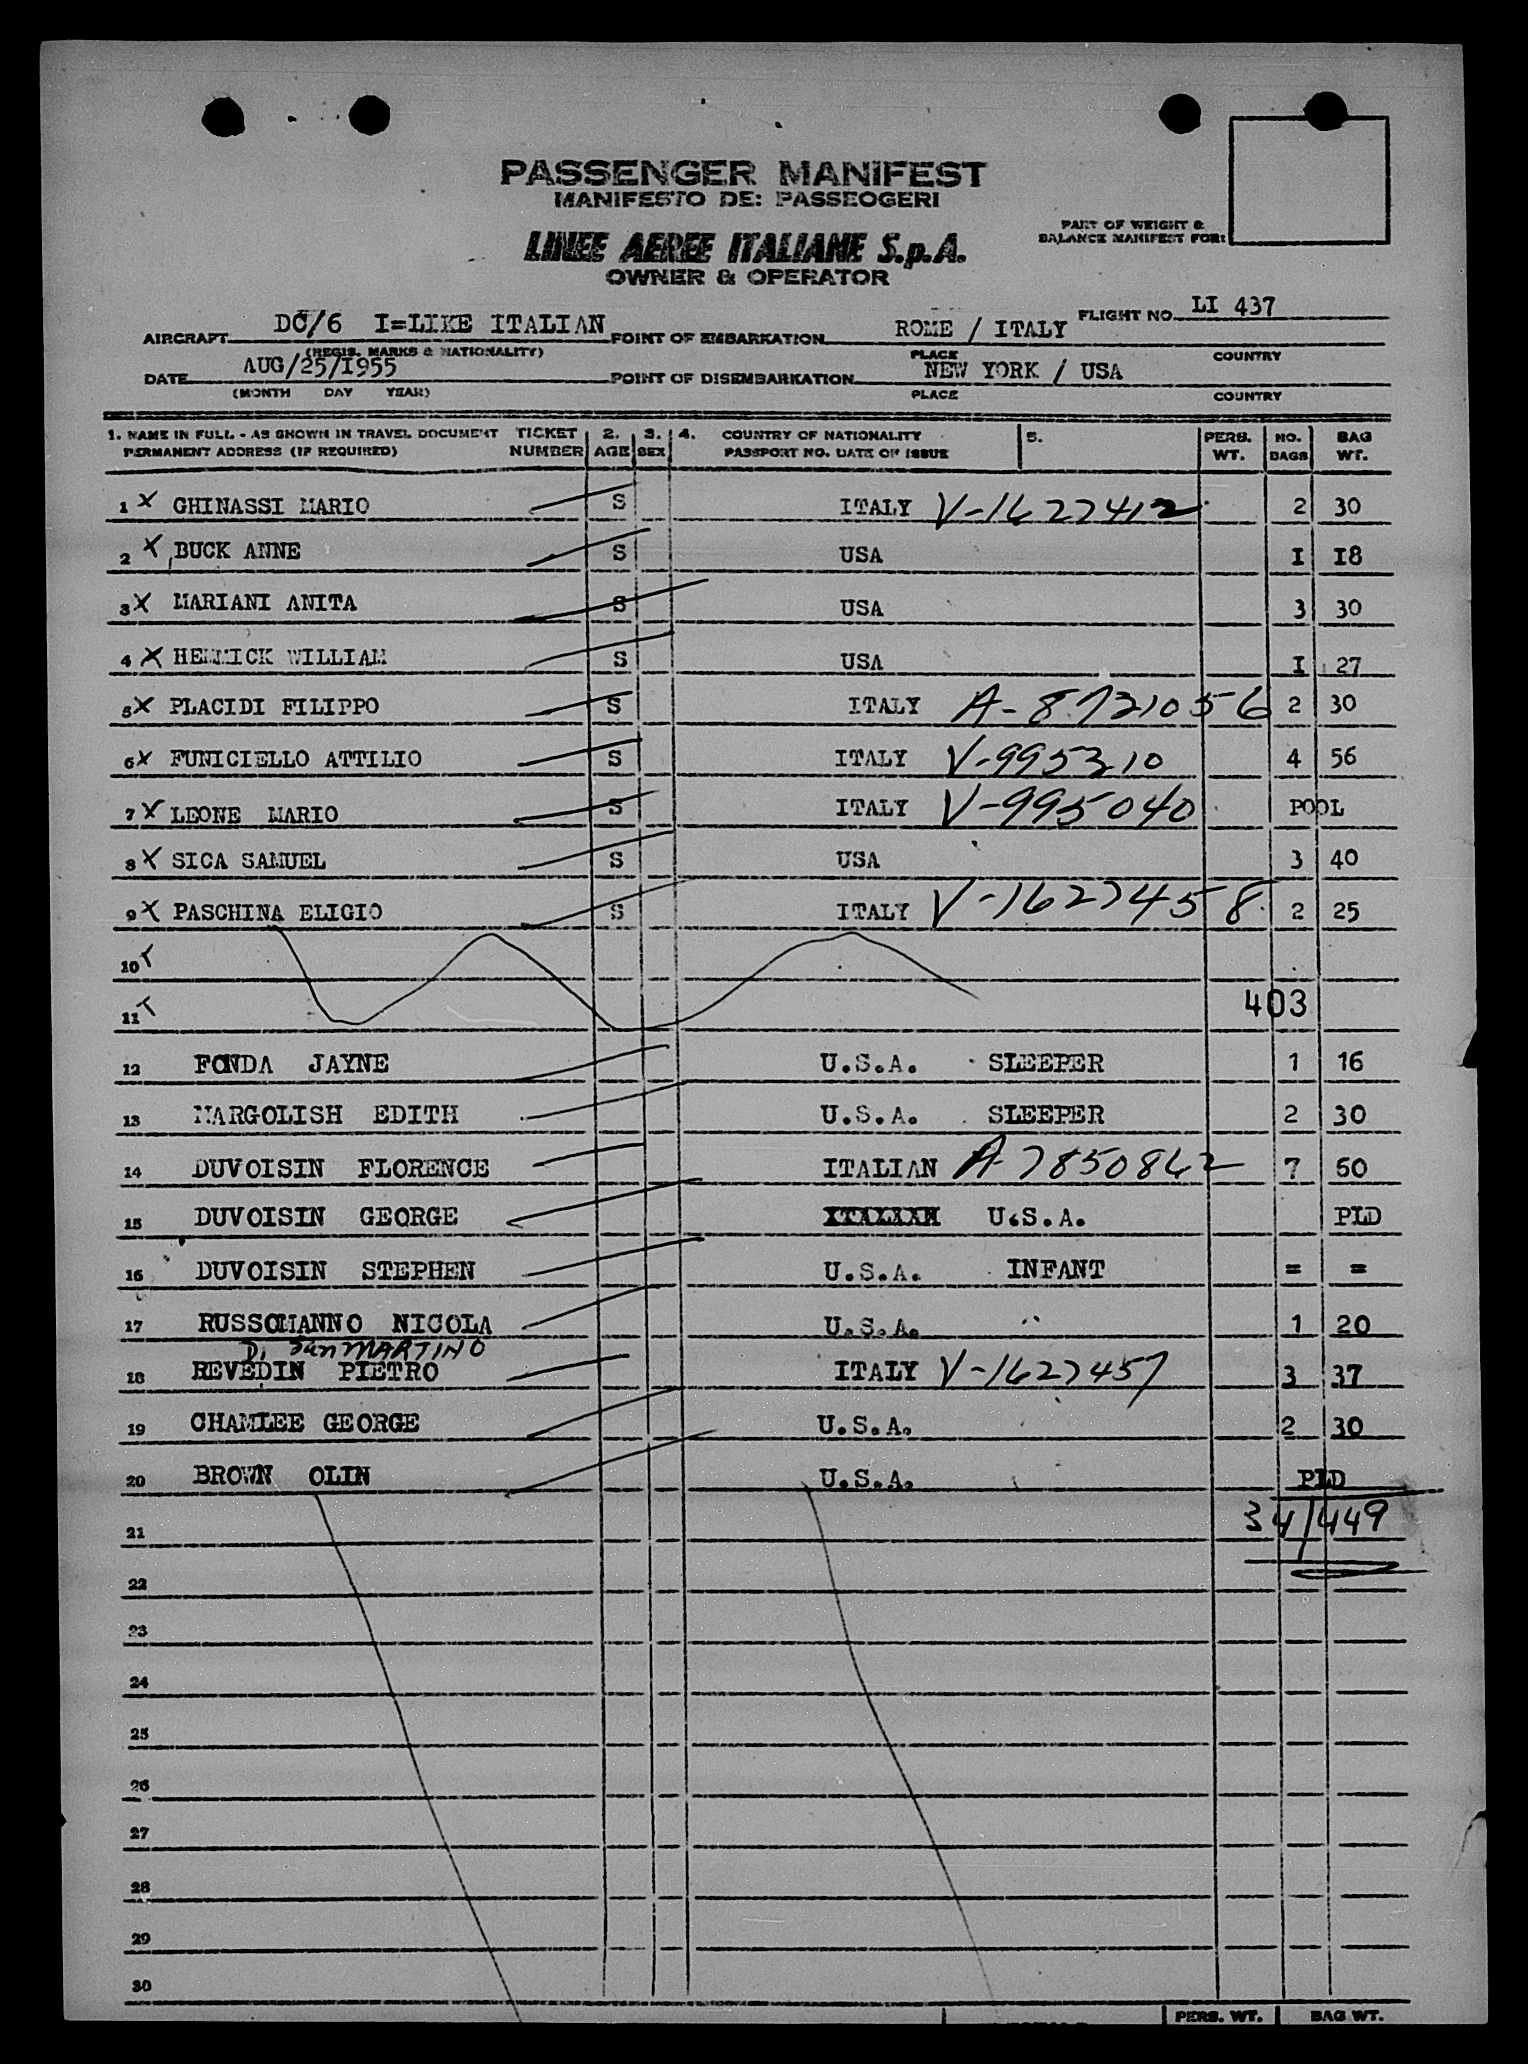 PASSENGER MANIFEST
MANIFESTO DE: PASSEOGERI
LINEE AEREE ITALIANE S.p.A.
OWNER & OPERATOR
PART OF WEIGHT &
BALANCE MANIFEST FOR:
AIRCRAFT DC/6 I=LIKE ITALIAN POINT OF EMBARKATION ROME / ITALY FLIGHT NO. LI 437
(REGIS. MARKS & NATIONALITY) PLACE COUNTRY
DATE AUG/25/I955 POINT OF DISEMBARKATION NEW YORK / USA
(MONTH DAY YEAR) PLACE COUNTRY
1. NAME IN FULL - AS SHOWN IN TRAVEL DOCUMENT TICKET 2. 3. 4. COUNTRY OF NATIONALITY 5. PERS. NO. BAG
PERMANENT ADDRESS (IF REQUIRED) NUMBER AGE SEX PASSPORT NO. DATE OF ISSUE WT. BAGS WT.
1 X GHINASSI MARIO S ITALY V-1622412 2 30
2 X BUCK ANNE S USA I I8
3 X MARIANI ANITA S USA 3 30
4 X HEMMICK WILLIAM S USA I 27
5 X PLACIDI FILIPPO S ITALY A-87210556 2 30
6 X FUNICIELLO ATTILIO S ITALY V-995210 4 56
7 X LEONE MARIO S ITALY V-995040 POOL
8 X SICA SAMUEL S USA 3 40
9 X PASCHINA ELIGIO S ITALY V-1627458 2 25
10
11 403
12 FONDA JAYNE U.S.A. SLEEPER 1 16
13 MARGOLISH EDITH U.S.A. SLEEPER 2 30
14 DUVOISIN FLORENCE ITALIAN A-7850862 7 50
15 DUVOISIN GEORGE U.S.A. PLD
16 DUVOISIN STEPHEN U.S.A. INFANT = =
17 RUSSOMANNO NICOLA U.S.A. 1 20
Di San MARTINO
18 REVEDIN PIETRO ITALY V-1627457 3 37
19 CHAMLEE GEORGE U.S.A. 2 30
20 BROWN OLIN U.S.A. PLD
21 34/449
22
23
24
25
26
27
28
29
30
PERS. WT. BAG WT.